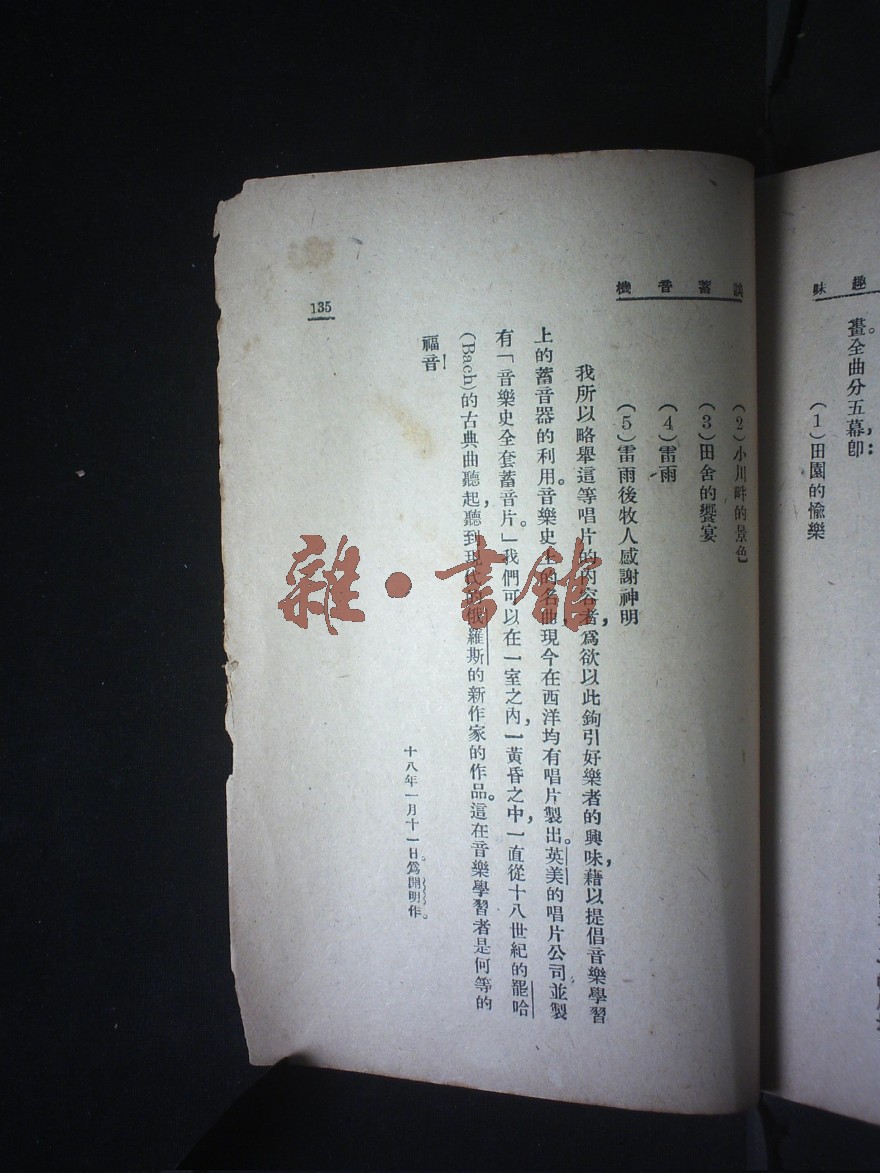 趣味
畫。全曲分五幕，卽：
（1）田園的愉樂
談蓄音機
（2）小川畔的景色
（3）田舍的饗宴
（4）雷雨
（5）雷雨後牧人感謝神明
我所以略舉這等唱片的內容者，爲欲以此鉤引好樂者的興味，藉以提倡音樂學習
上的蓄音器的利用。音樂史上的名曲，現今在西洋均有唱片製出。英美的唱片公司並製
有「音樂史全套蓄音片。」我們可以在一室之內，一黃昏之中，一直從十八世紀的罷哈
(Bach)的古典曲聽起，聽到現代的俄羅斯的新作家的作品。這在音樂學習者是何等的
福音！
十八年一月十一日。爲開明作。
135
雜·書館